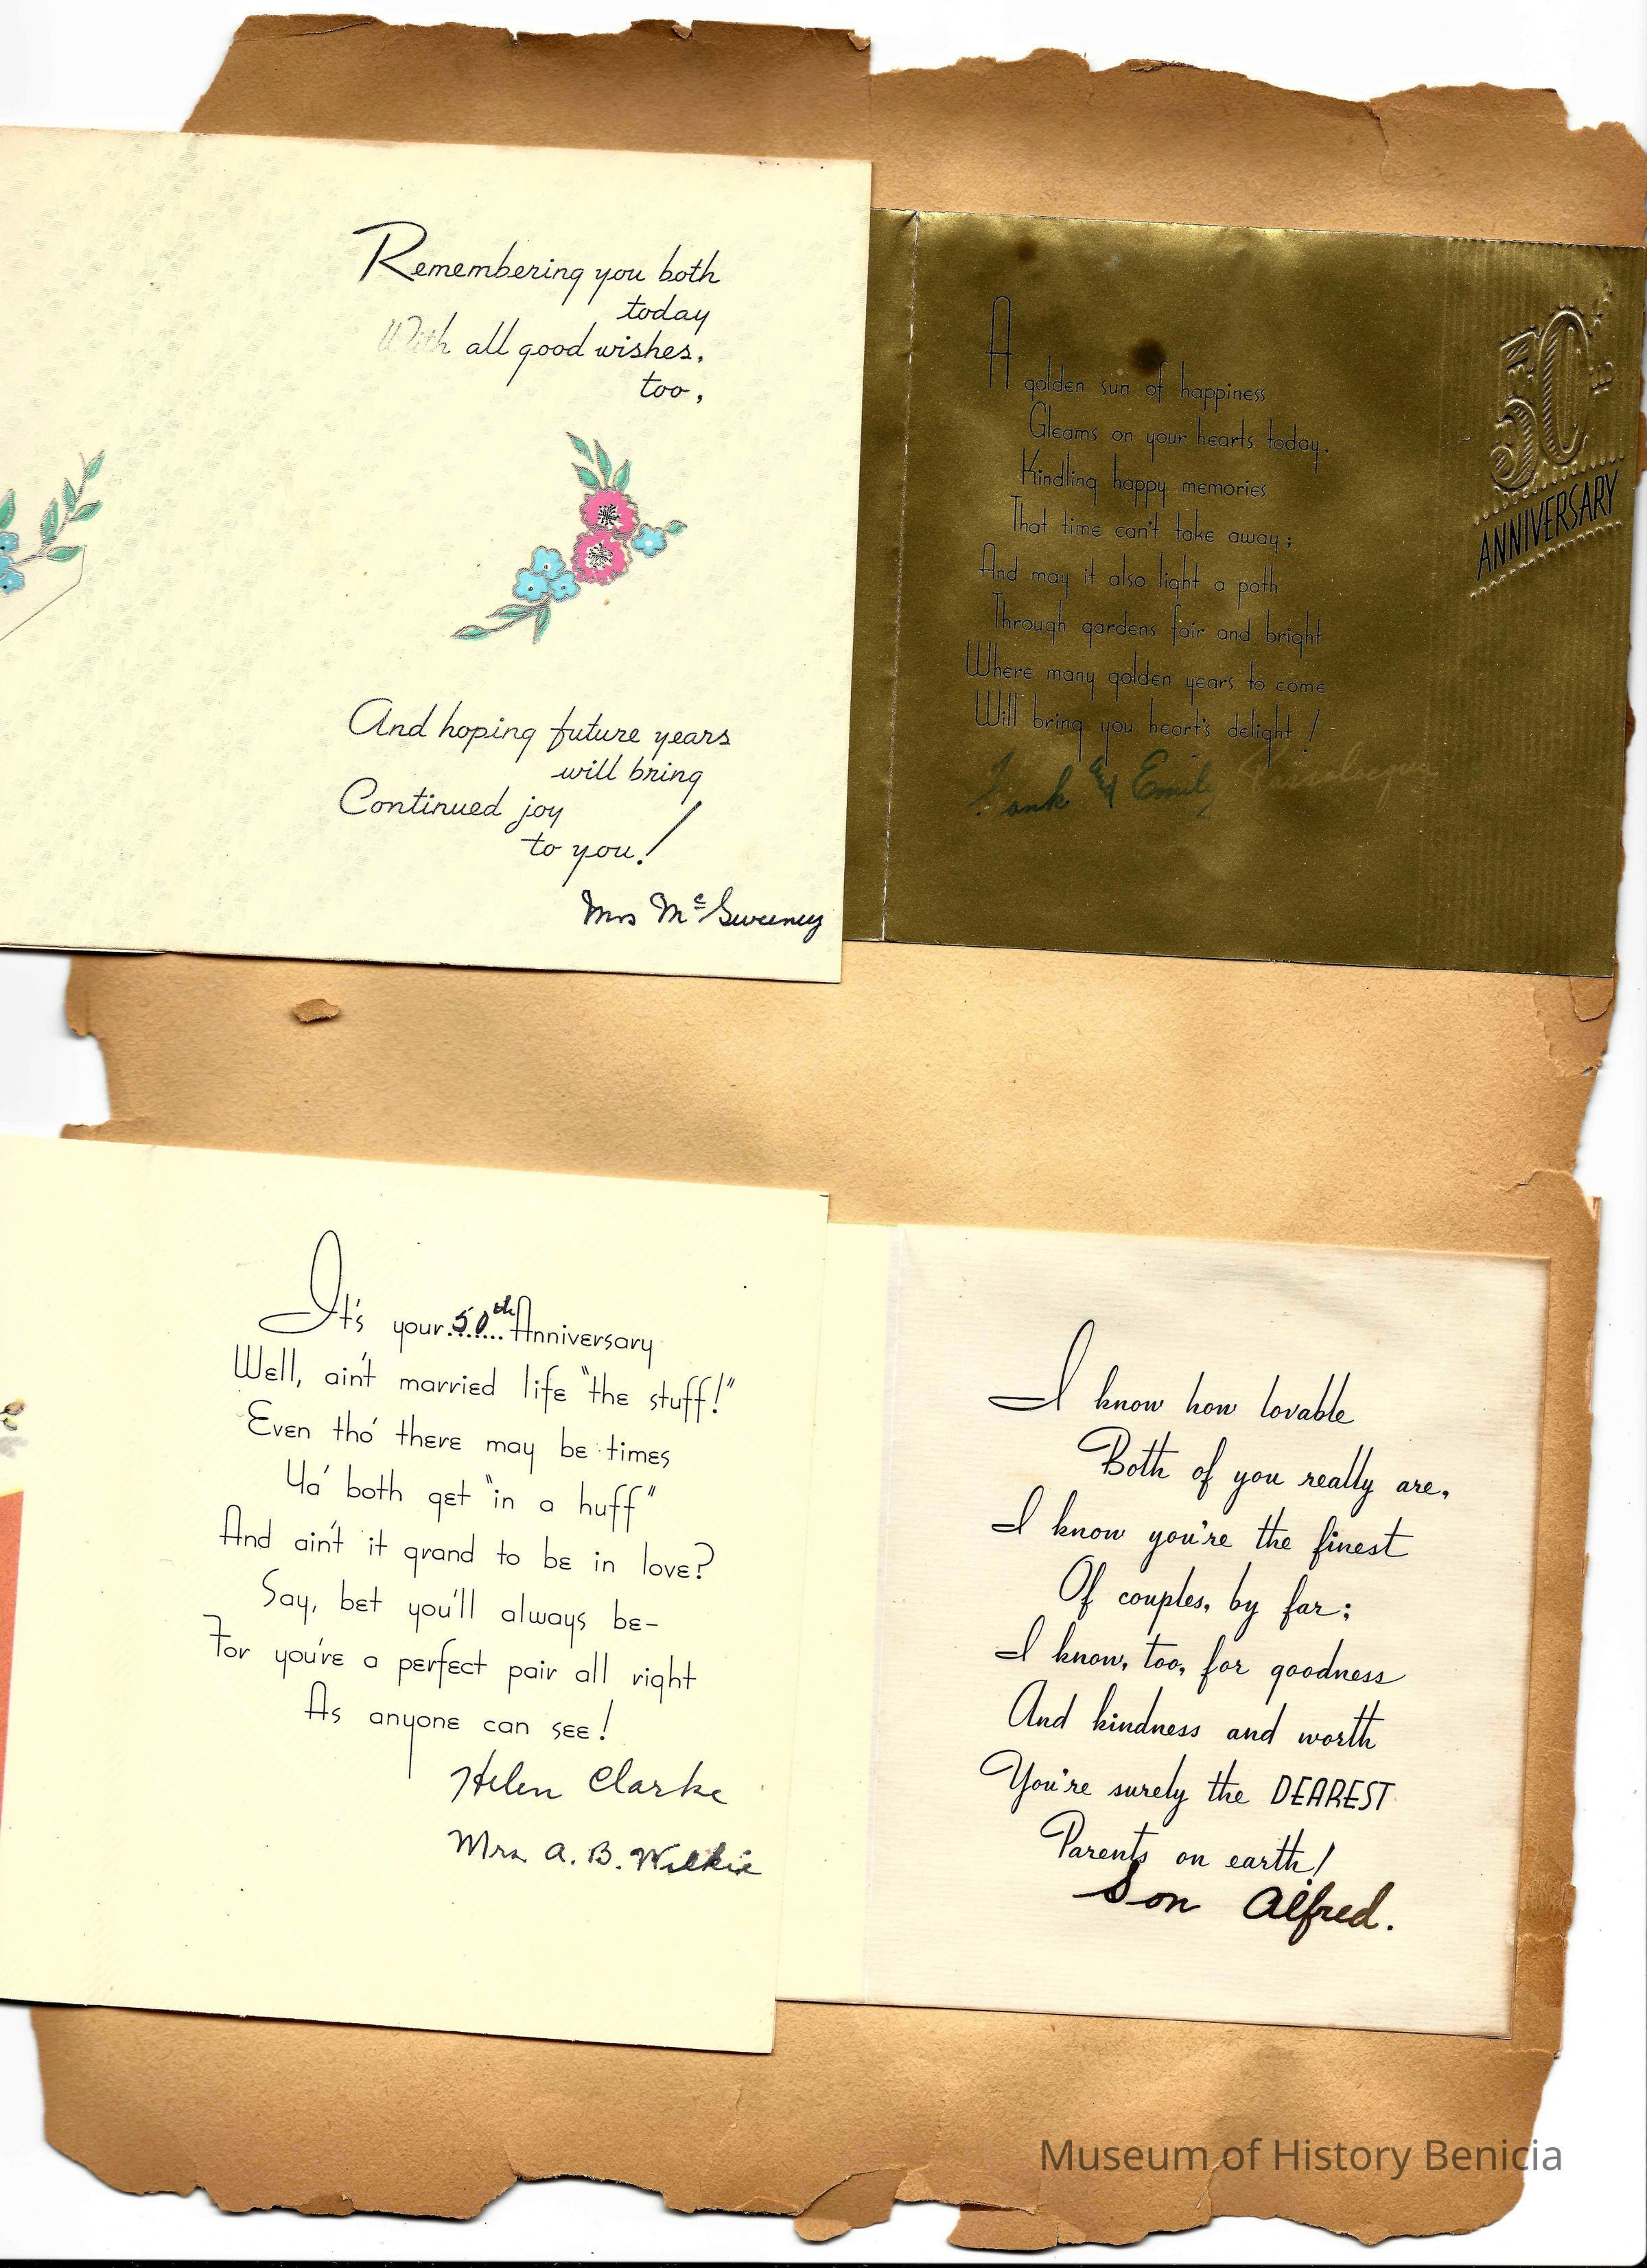 Remembering you both
today
With all good wishes,
too,
And hoping future years
will bring
Continued joy
to you!
Mrs McSweeney
A golden sun of happiness
Gleams on your hearts today,
Kindling happy memories
That time can't take away;
And may it also light a path
Through gardens fair and bright
Where many golden years to come
Will bring you heart's delight!
Frank & Emily
50th
ANNIVERSARY
It's your 50th Anniversary
Well, ain't married life "the stuff!"
Even tho' there may be times
Ya' both get "in a huff"
And ain't it grand to be in love?
Say, bet you'll always be-
For you're a perfect pair all right
As anyone can see!
Helen Clarke
Mrs. A. B. Wilkie
I know how lovable
Both of you really are,
I know you're the finest
Of couples, by far;
I know, too, for goodness
And kindness and worth
You're surely the DEAREST
Parents on earth!
Son Alfred.
Museum of History Benicia